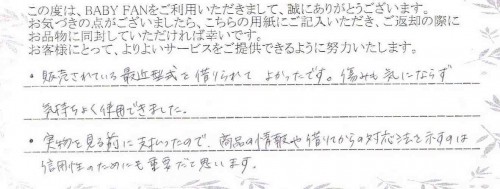 この度は、BABY FANをご利用いただきまして、誠にありがとうございます。
お気づきの点がございましたら、こちらの用紙にご記入いただき、ご返却の際に
お品物に同封していただければ幸いです。
お客様にとって、よりよいサービスをご提供できるように努力いたします。
・販売されている最近型式を借りられて よかったです。傷みも気にならず
気持ちよく使用できました。
・実物を見る前に支払ったので、商品の情報や借りてからの対応法を示すのは
信用性のためにも重要だと思います。